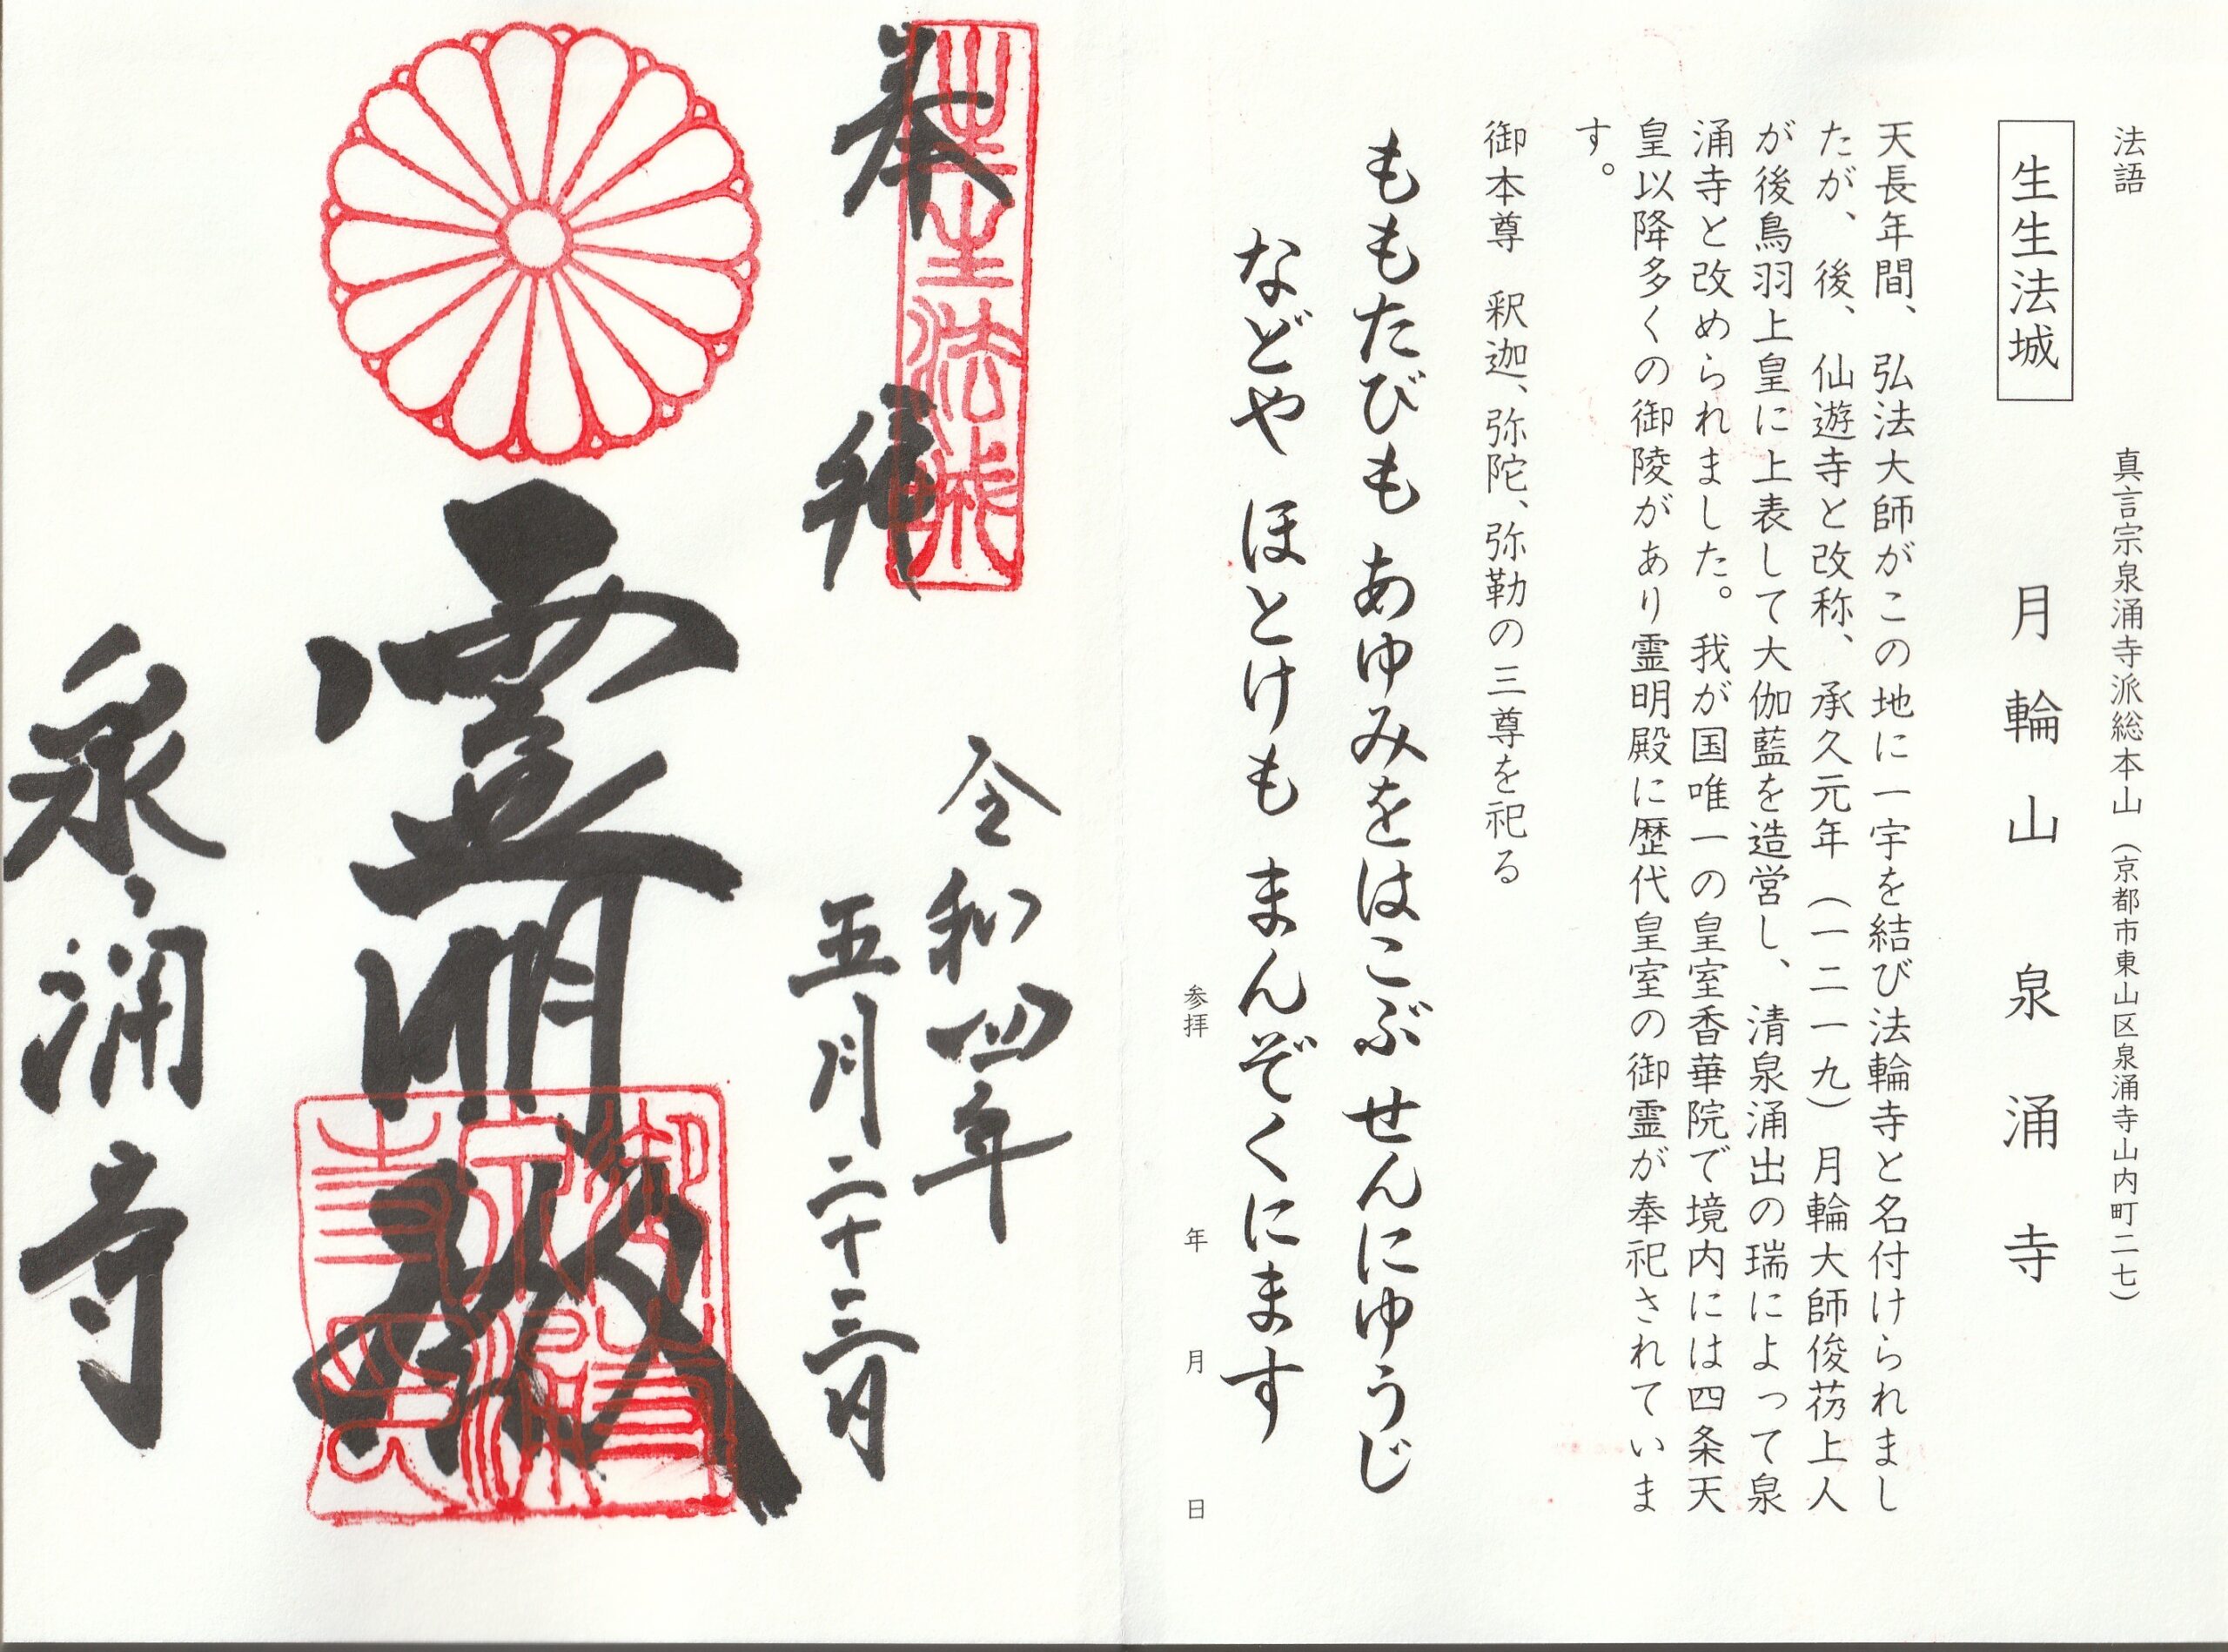 法語　真言宗泉涌寺派総本山（京都市東山区泉涌寺山内町二七）
生生法城　月輪山　泉涌寺
天長年間、弘法大師がこの地に一宇を結び法輪寺と名付けられまし
たが、後、仙遊寺と改称、承久元年（一二一九）月輪大師俊芿上人
が後鳥羽上皇に上表して大伽藍を造営し、清泉涌出の瑞によって泉
涌寺と改められました。我が国唯一の皇室香華院で境内には四条天
皇以降多くの御陵があり霊明殿に歴代皇室の御霊が奉祀されていま
す。
御本尊　釈迦、弥陀、弥勒の三尊を祀る
ももたびも あゆみをはこぶ せんにゆうじ
などや ほとけも まんぞくにます
参拝　年　月　日
生生法城
奉拝
令和四年
五月二十三日
霊明殿
泉涌寺